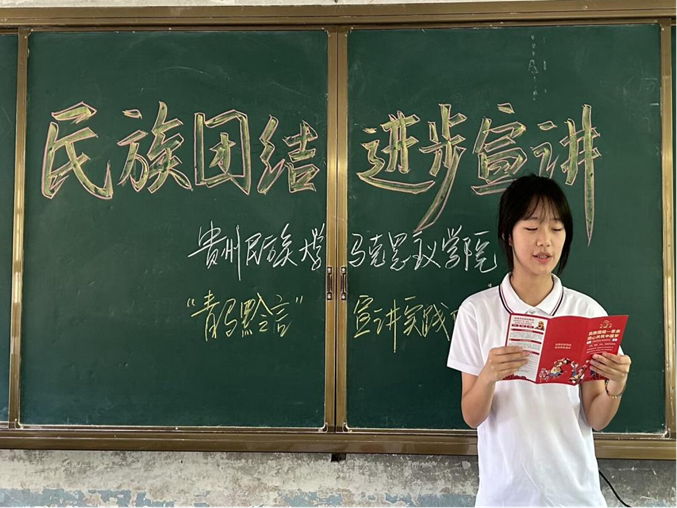 民族团结 进步宣讲
贵州民族大学 马克思主义学院
“青马黔言” 宣讲实践